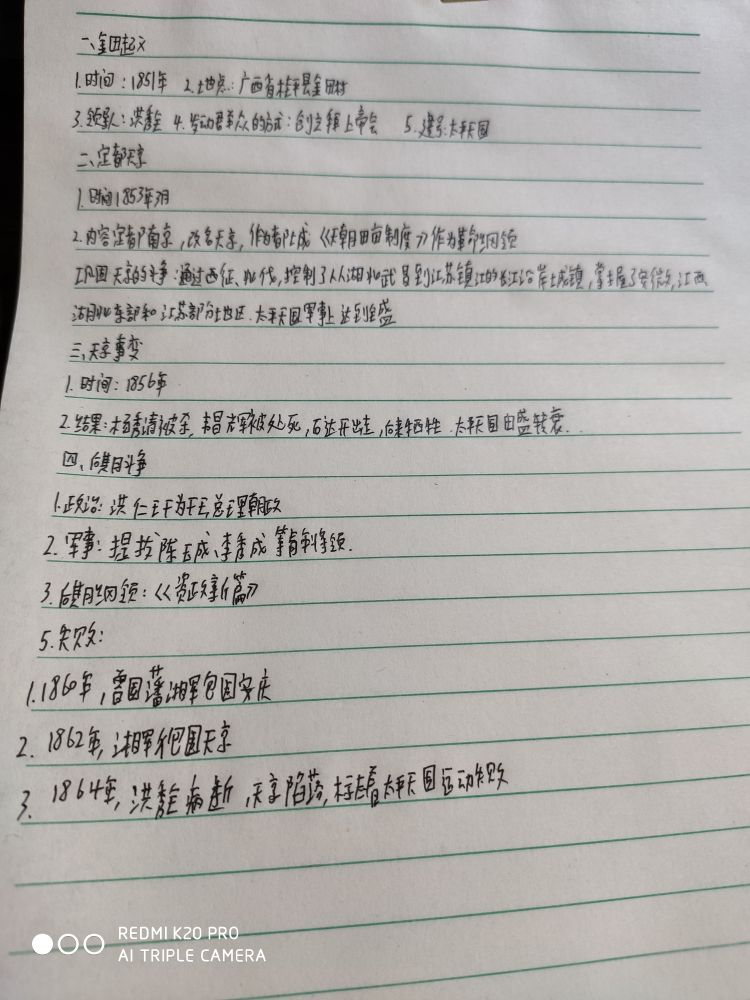 一、金田起义
1.时间：1851年 2.地点：广西省桂平县金田村
3.领导人：洪秀全 4.发动群众的方式：创立拜上帝会 5.建号：太平天国
二、定都天京
1.时间1853年3月
2.内容定都南京，改名天京，作为都城《天朝田亩制度》作为革命纲领
巩固天京的斗争：通过西征、北伐，控制了从湖北武昌到江苏镇江的长江沿岸城镇，掌握了安徽、江西
湖北东部和江苏部分地区.太平天国军事上达到全盛
三、天京事变
1.时间：1856年
2.结果：杨秀清被杀，韦昌辉被处死，石达开出走，后来牺牲.太平天国由盛转衰.
四、后期斗争
1.政治：洪仁玕为干王，总理朝政
2.军事：提拔陈玉成、李秀成等青年将领.
3.后期纲领：《资政新篇》
5.失败：
1.1860年，曾国藩湘军包围安庆
2.1862年，湘军包围天京
3.1864年，洪秀全病逝，天京陷落，标志着太平天国运动失败
REDMI K20 PRO
AI TRIPLE CAMERA